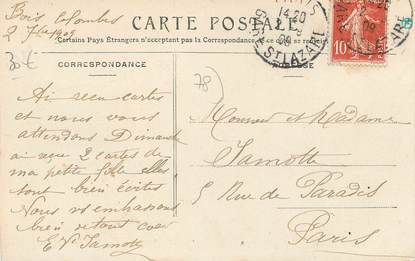 Bois Colombes
2 7bre 1909
CARTE POSTALE
Certains Pays Étrangers n'acceptent pas la Correspondance
CORRESPONDANCE
30€
78
Ai reçu cartes
et nous vous
attendons Dimanche
ai reçu 2 cartes de
ma petite fille elles
sont bien écrites
Nous vs embrassons
bien de tout cœur
E Ve Jamotte
Monsieur et Madame
Jamotte
5 Rue de Paradis
Paris
PARIS
14 30
09
ST LAZARE
10